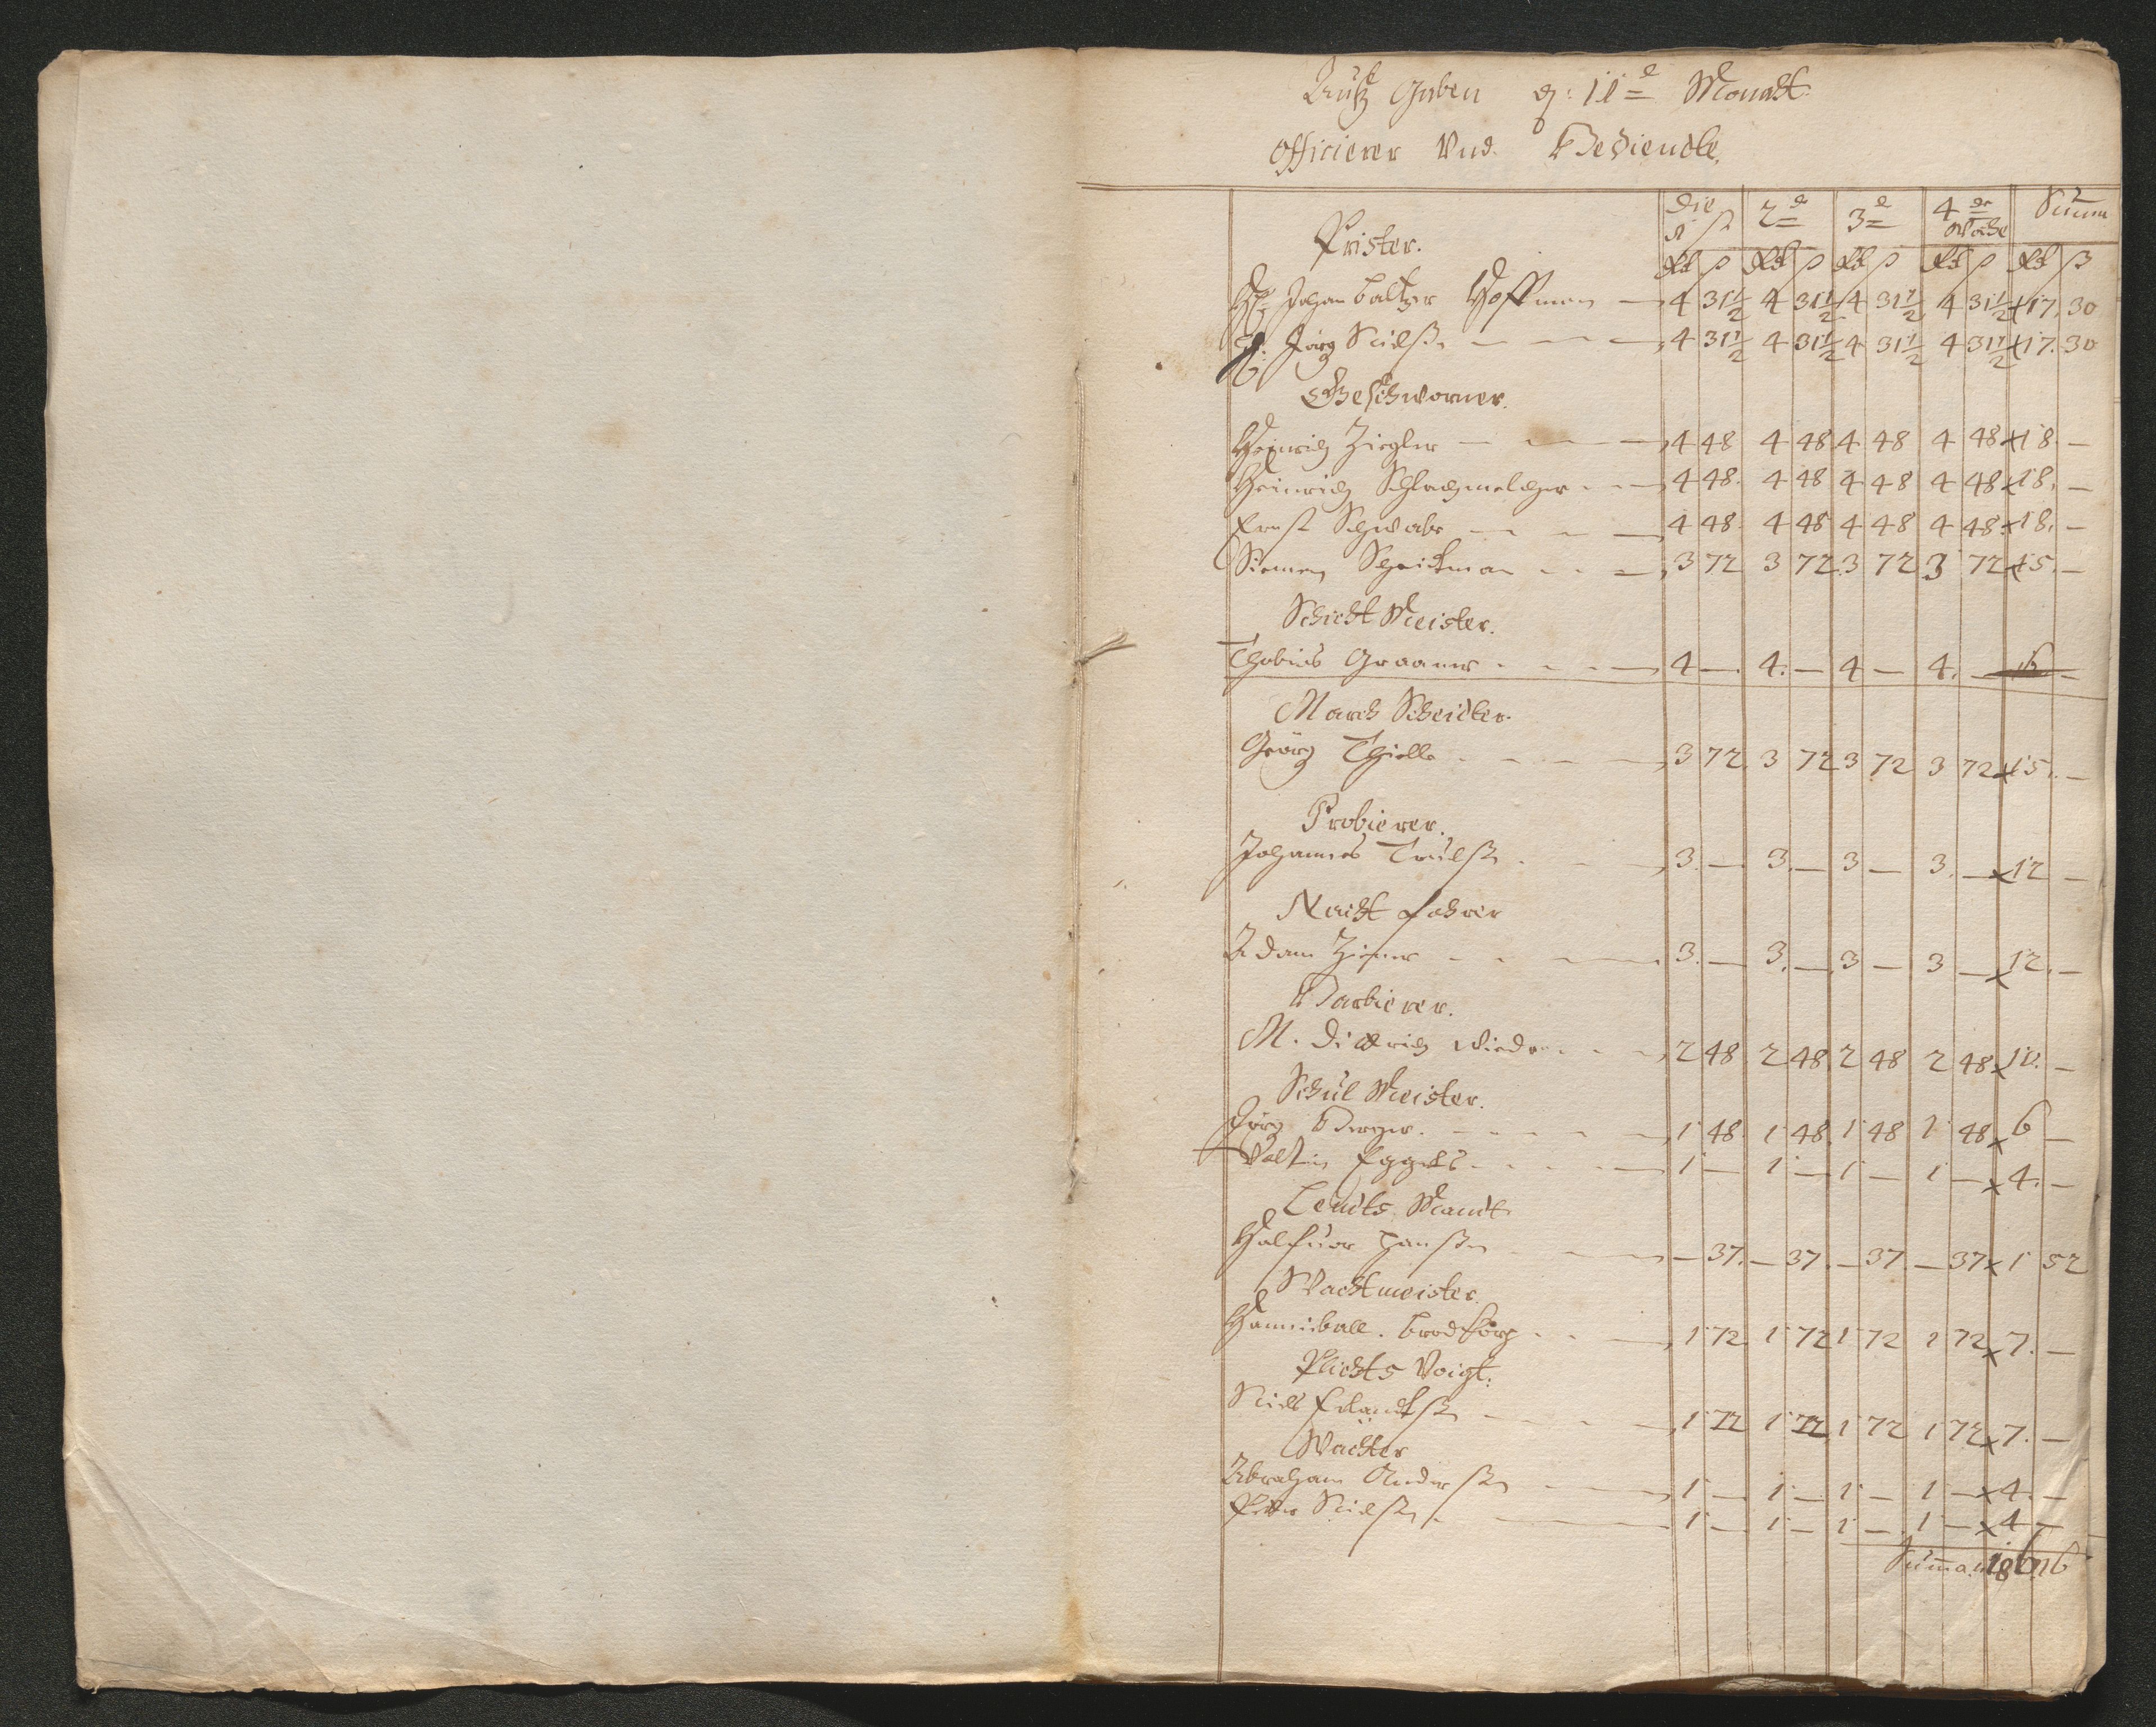 Auß Gaben d: 11de Monadt
Officierer Vnd Bediendte
Die 1st 2de 3de 4de Woche Summ
Prister. Rd ß Rd ß Rd ß Rd ß Rd ß
H: Johan Baltzer Hoffman 4 31½ 4 31½ 4 31½ 4 31½ x 17. 30
H: Jörg Nielßn 4 31½ 4 31½ 4 31½ 4 31½ x 17. 30
Geschworner.
Heinrich Ziegler 4 48 4 48 4 48 4 48 x 18. —
Heinrich Schlagmelcher 4 48. 4 48 4 48 4 48 x 18. —
Ernst Schwabe 4 48 4 48 4 48 4 48 x 18. —
Simen 3 72 3 72 3 72 3 72 x 15. —
Schicht Meister.
Thobias Graaner 4 — 4. — 4 — 4. — 16 —
March Scheider.
Geörg Thielle 3 72 3 72 3 72 3 72 x 15. —
Probierer.
Johannes Trulßn 3. — 3. — 3 — 3. — x 12 —
Nacht fahrer
Adam Ziener 3. — 3. — 3 — 3 — x 12. —
Barbierer.
M. Dittrich Wieder 2 48 2 48 2 48 2 48 x 10. —
Schul Meister.
Jörg Berger. 1 48 1 48 1 48 1 48 x 6 —
Valtin Eggers 1 — 1 — 1 — 1 — x 4. —
Lendts Mandt
Halfuor Hanßn — 37. — 37. — 37. — 37 x 1 52
Wachtmeister.
Hanniball. 1 72 1 72 1 72 1 72 x 7. —
Plichts Voigt.
Niels Erlandtßn 1 72 1 72 1 72 1 72 x 7. —
Wächter
Abraham Anderßn 1 — 1 — 1 — 1 — x 4. —
Peter Nielßn 1 — 1 — 1 — 1 — x 4 —
Summa 186 16